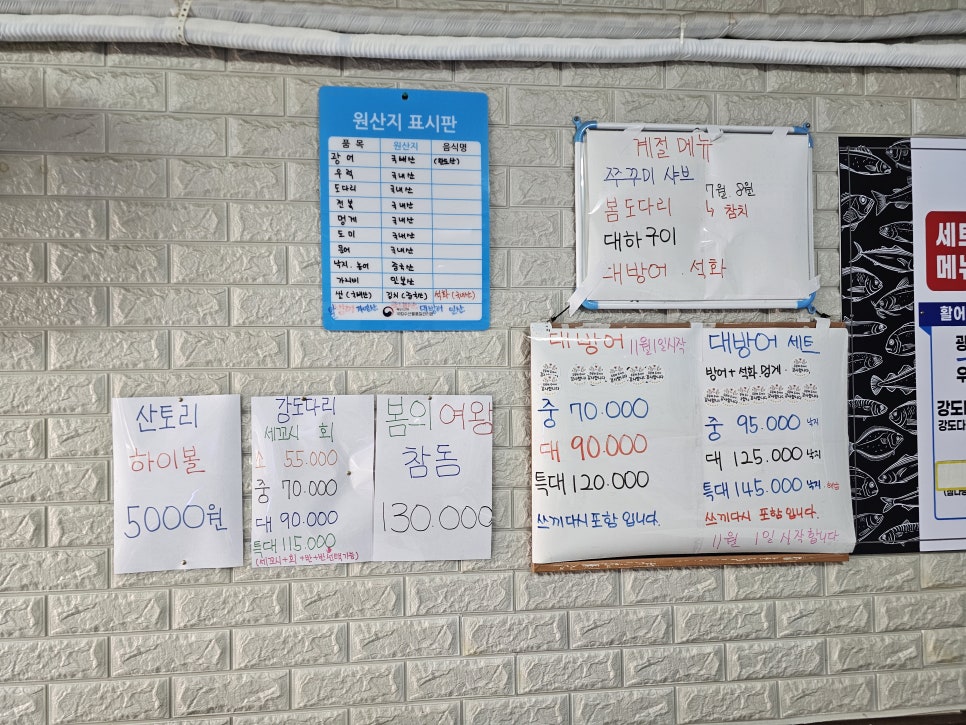 원산지 표시판
품 목 원산지 음식명
광 어 국내산 (완도산)
우 럭 국내산
도다리 국내산
전 복 국내산
멍게 국내산
도 미 국내산
문어 국내산
낙지.농어 중국산
가리비 일본산
쌀 (국내산) 김치 (중국산) 석화 (국내산)
대방어 일산
계절 메뉴
쭈꾸미 샤브
7월 8월
봄 도다리 ↳ 참치
대하구이
대방어 . 석화
산토리
하이볼
5000원
강도다리
세꼬시 회
소 55.000
중 70.000
대 90.000
특대 115.000
(세꼬시+회+반+반 선택가능)
봄의 여왕
참돔
130.000
대방어 11월1일시작
중 70.000
대 90.000
특대 120.000
쓰끼다시포함 입니다.
대방어 세트
방어 + 석화 멍게
중 95.000 낙지
대 125.000 낙지
특대 145.000 낙지 해삼
쓰끼다시 포함 입니다.
11월 1일 시작합니다
세트
메뉴
활어
광
우
강도다
강도다